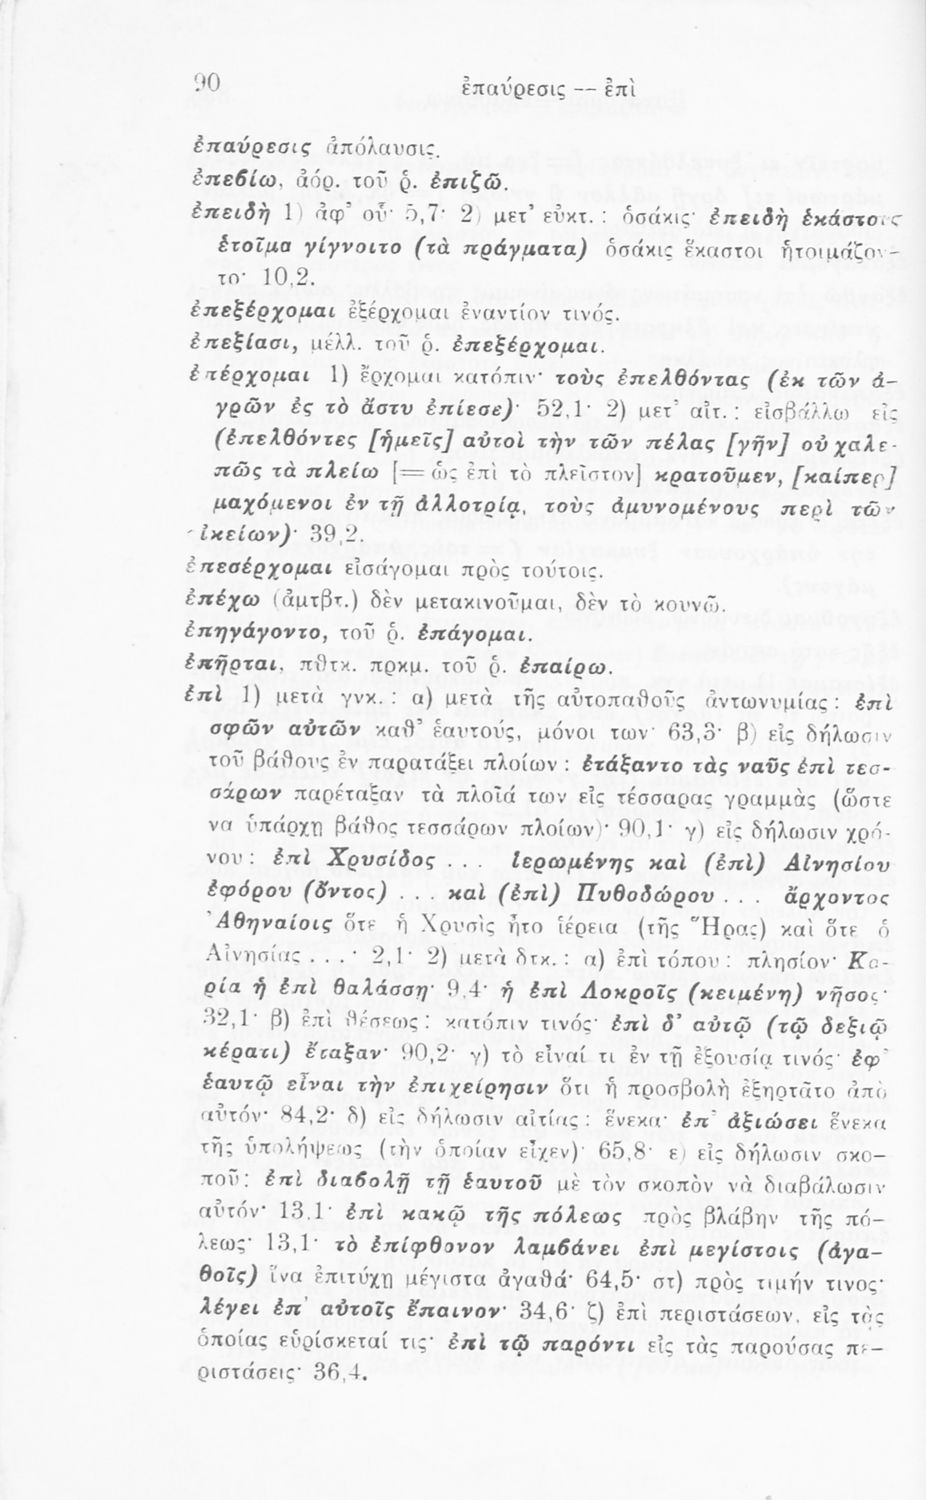 90
ἐπαύρεσις — ἐπὶ
ἐπαύρεσις ἀπόλαυσις.
ἐπεβίω, ἀόρ. τοῦ ῥ. ἐπιζῶ.
ἐπειδὴ 1) ἀφ’ οὗ· 5,7· 2) μετ’ εὐκτ. : ὁσάκις· ἐπειδὴ ἑκάστοις
ἑτοῖμα γίγνοιτο (τὰ πράγματα) ὁσάκις ἕκαστοι ἡτοιμάζον-
το· 10,2.
ἐπεξέρχομαι ἐξέρχομαι ἐναντίον τινός.
ἐπεξίασι, μέλλ. τοῦ ῥ. ἐπεξέρχομαι.
ἐπέρχομαι 1) ἔρχομαι κατόπιν· τοὺς ἐπελθόντας (ἐκ τῶν ἀ-
γρῶν ἐς τὸ ἄστυ ἐπίεσε)· 52,1· 2) μετ’ αἰτ. : εἰσβάλλω εἰς
(ἐπελθόντες [ἡμεῖς] αὐτοὶ τὴν τῶν πέλας [γῆν] οὐ χαλε-
πῶς τὰ πλείω [= ὡς ἐπὶ τὸ πλεῖστον] κρατοῦμεν, [καίπερ]
μαχόμενοι ἐν τῇ ἀλλοτρίᾳ, τοὺς ἀμυνομένους περὶ τῶν
οἰκείων)· 39,2.
ἐπεσέρχομαι εἰσάγομαι πρὸς τούτοις.
ἐπέχω (ἀμτβτ.) δὲν μετακινοῦμαι, δὲν τὸ κουνῶ.
ἐπηγάγοντο, τοῦ ῥ. ἐπάγομαι.
ἐπῆρται, πθτκ. πρκμ. τοῦ ῥ. ἐπαίρω.
ἐπὶ 1) μετὰ γνκ. : α) μετὰ τῆς αὐτοπαθοῦς ἀντωνυμίας : ἐπὶ
σφῶν αὐτῶν καθ’ ἑαυτούς, μόνοι των· 63,3· β) εἰς δήλωσιν
τοῦ βάθους ἐν παρατάξει πλοίων : ἐτάξαντο τὰς ναῦς ἐπὶ τεσ-
σάρων παρέταξαν τὰ πλοῖά των εἰς τέσσαρας γραμμὰς (ὥστε
να ὑπάρχῃ βάθος τεσσάρων πλοίων)· 90,1· γ) εἰς δήλωσιν χρό-
νου : ἐπὶ Χρυσίδος . . . ἱερωμένης καὶ (ἐπὶ) Αἰνησίου
ἐφόρου (ὄντος) . . . καὶ (ἐπὶ) Πυθοδώρου . . . ἄρχοντος
Ἀθηναίοις ὅτε ἡ Χρυσὶς ἦτο ἱέρεια (τῆς Ἥρας) καὶ ὅτε ὁ
Αἰνησίας . . . · 2,1· 2) μετὰ δτκ. : α) ἐπὶ τόπου : πλησίον· Κα-
ρία ἡ ἐπὶ θαλάσσῃ· 9,4· ἡ ἐπὶ Λοκροῖς (κειμένη) νῆσος·
32,1· β) ἐπὶ θέσεως : κατόπιν τινός· ἐπὶ δ’ αὐτῷ (τῷ δεξιῷ
κέρατι) ἔταξαν· 90,2· γ) τὸ εἶναί τι ἐν τῇ ἐξουσίᾳ τινός· ἐφ’
ἑαυτῷ εἶναι τὴν ἐπιχείρησιν ὅτι ἡ προσβολὴ ἐξηρτᾶτο ἀπὸ
αὐτόν· 84,2· δ) εἰς δήλωσιν αἰτίας : ἕνεκα· ἐπ’ ἀξιώσει ἕνεκα
τῆς ὑπολήψεως (τὴν ὁποίαν εἶχεν)· 65,8· ε) εἰς δήλωσιν σκο-
ποῦ : ἐπὶ διαβολῇ τῇ ἑαυτοῦ μὲ τὸν σκοπὸν νὰ διαβάλωσιν
αὐτόν· 13,1· ἐπὶ κακῷ τῆς πόλεως πρὸς βλάβην τῆς πό-
λεως· 13,1· τὸ ἐπίφθονον λαμβάνει ἐπὶ μεγίστοις (ἀγα-
θοῖς) ἵνα ἐπιτύχῃ μέγιστα ἀγαθά· 64,5· στ) πρὸς τιμήν τινος·
λέγει ἐπ’ αὐτοῖς ἔπαινον· 34,6· ζ) ἐπὶ περιστάσεων, εἰς τὰς
ὁποίας εὑρίσκεταί τις· ἐπὶ τῷ παρόντι εἰς τὰς παρούσας πε-
ριστάσεις· 36,4.